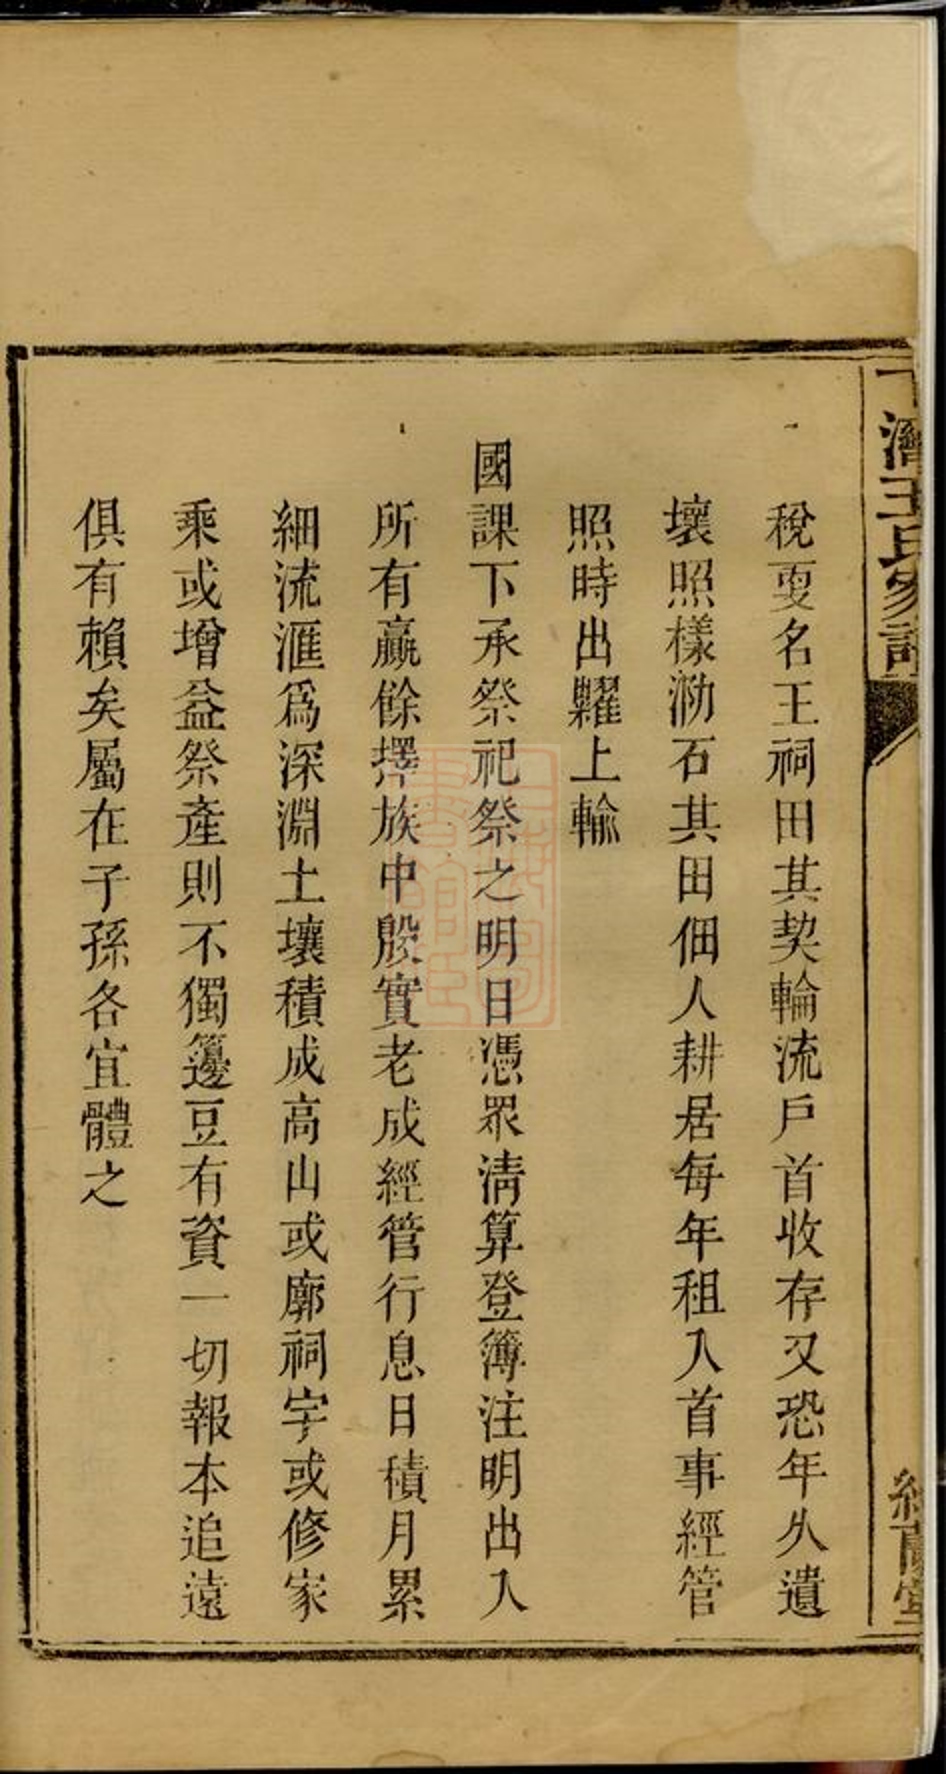 王氏家譜
稅更名王祠田其契輪流戶首收存又恐年久遺
壞照樣泐石其田佃人耕居每年租入首事經管
照時出糶上輸
國課下承祭祀祭之明日憑眾清算登簿注明出入
所有贏餘擇族中殷實老成經管行息日積月累
細流滙爲深淵土壤積成高山或廓祠宇或修家
乘或增益祭產則不獨籩豆有資一切報本追遠
俱有賴矣屬在子孫各宜體之